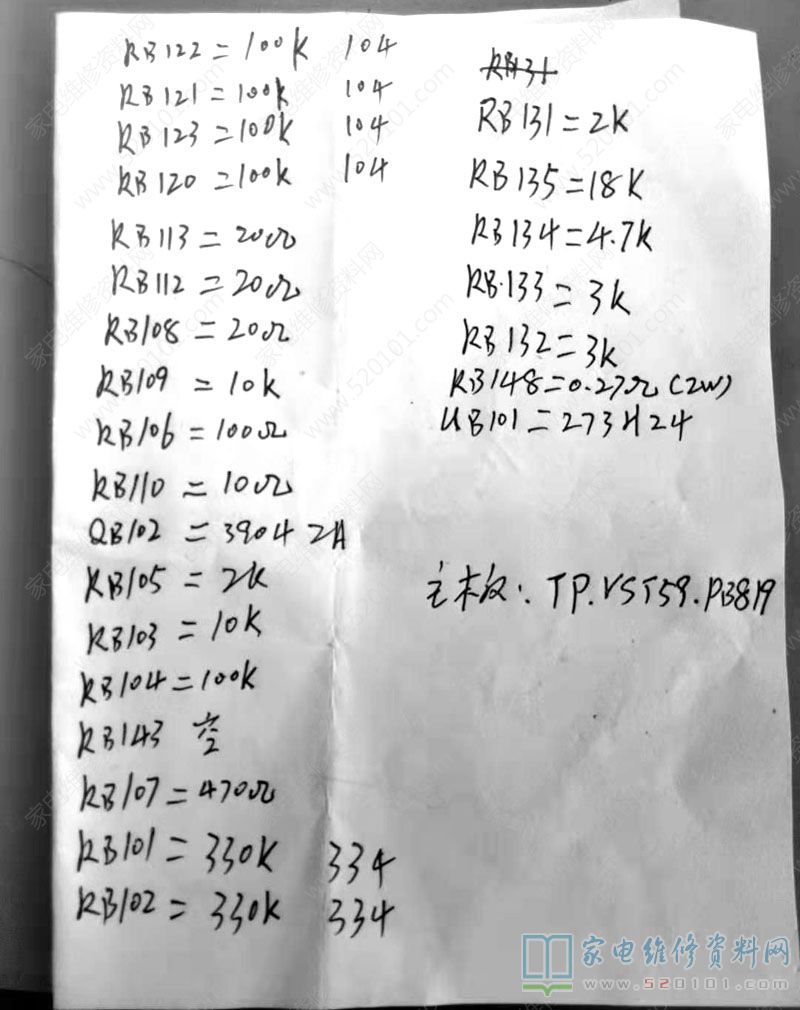 RB122=100K 104
RB121=100K 104
RB123=100K 104
RB120=100K 104
RB113=20Ω
RB112=20Ω
RB108=20Ω
RB109=10K
RB106=100Ω
RB110=10Ω
QB102=3904 2A
RB105=2K
RB103=10K
RB104=100K
RB143 空
RB107=470Ω
RB101=330K 334
RB102=330K 334
RB131
RB131=2K
RB135=18K
RB134=4.7K
RB133=3K
RB132=3K
RB148=0.27Ω(2W)
UB101=273H24
主板:TP.VST59.PB819
家电维修资料网
www.520101.com